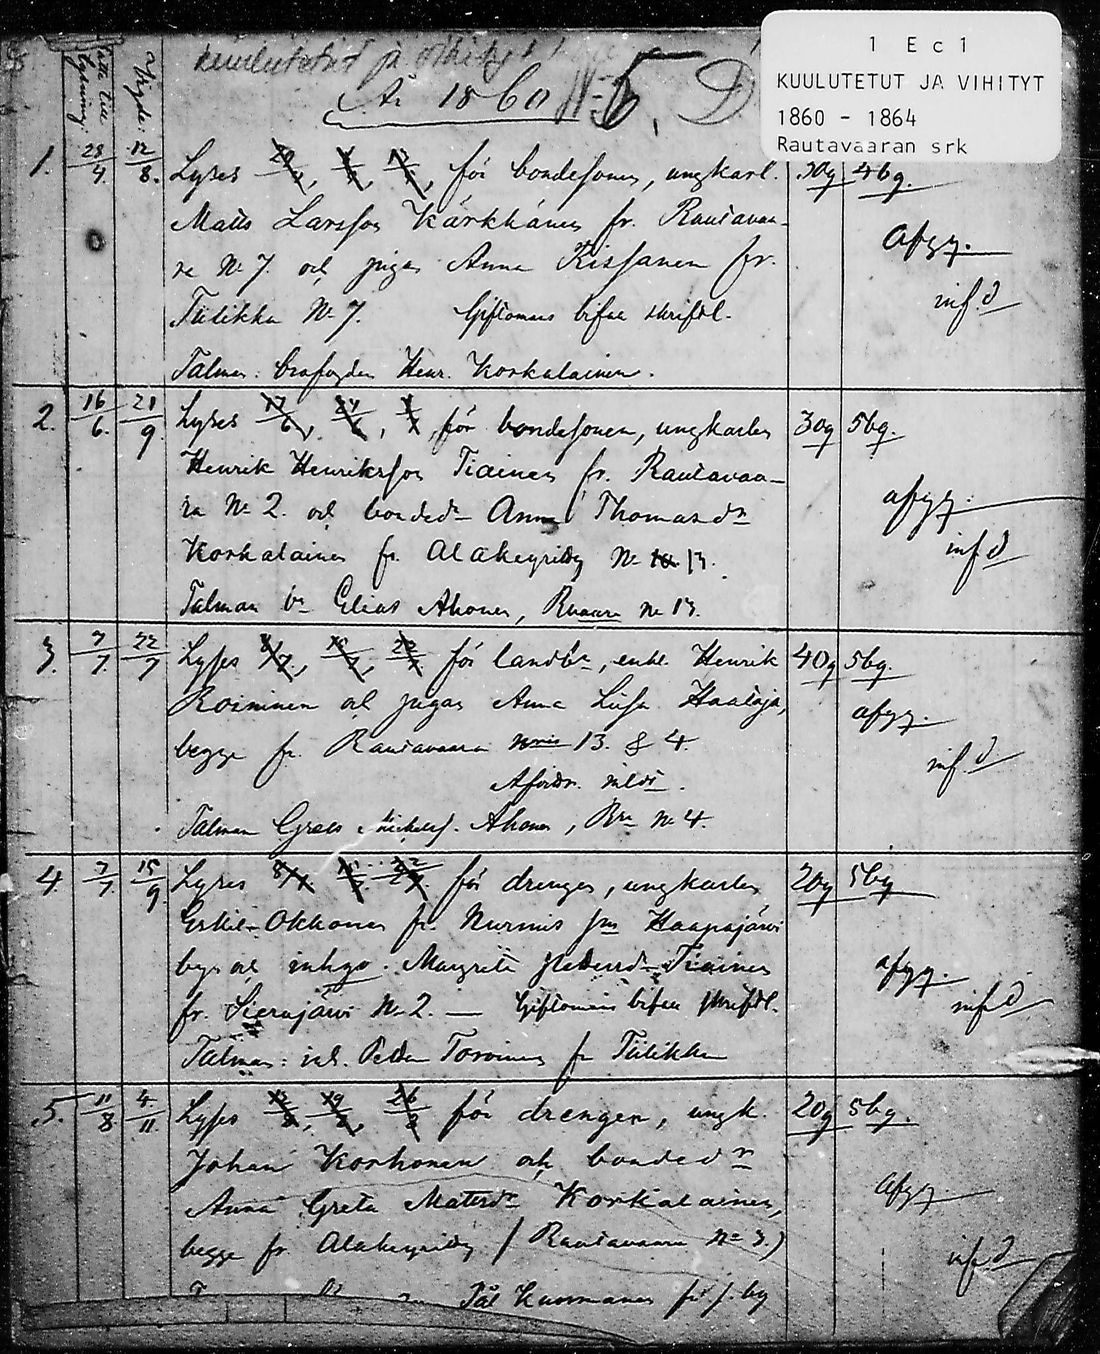 1 Ec1
KUULUTETUT JA VIHITYT
1860 - 1864
Rautavaaran srk
kuulutetut ja vihityt
År 1860
lysning: Vigde:
1. 28/4. 12/8. Lyses för bondesonen, ungkarl. 30g 4bg.
Matts Larsson Kärkkäinen fr. Rautavaa-
ra No 7. och pigan Anna Kissanen fr.
Tiilikka No 7. Giftomans bifall skriftl.
Talman: Henr. Korkalainen.
afgg.
inf d
2. 16/6. 21/9. Lyses för bondesonen, ungkarlen 30g 5bg.
Henrik Henriksson Tiainen fr. Rautavaa-
ra No 2. och bondedr Anna Thomasdr
Korkalainen fr. Alakeyritty No 13.
Talman br Elias Ahonen, No 13.
afgg.
inf d
3. 7/7. 22/7 Lyses för landbr, enkl. Henrik 40g 5bg.
Roininen och pigan Anna Lisa Haataja,
begge fr Rautavaara 13. & 4.
Talman Ahonen, No 4.
afgg.
inf d
4. 7/7. 15/9 Lyses för drengen, ungkarlen 20g 5bg
Erkel Okkonen fr. Nurmis sn Haapajärvi
by och inhys. Margreta Pedersdr Tiainen
fr. Sierajärvi No 2. — Giftomans bifall skriftl.
Talman: Peder Torvinen fr Tiilikka
afgg.
inf d
5. 11/8 4/11 Lyses för drengen, ungk. 20g 5bg.
Johan Korhonen och bondedr
Anna Greta Matsdr Korkalainen,
begge fr. Alakeyritty (Rautavaara No 3.)
afgg
inf d